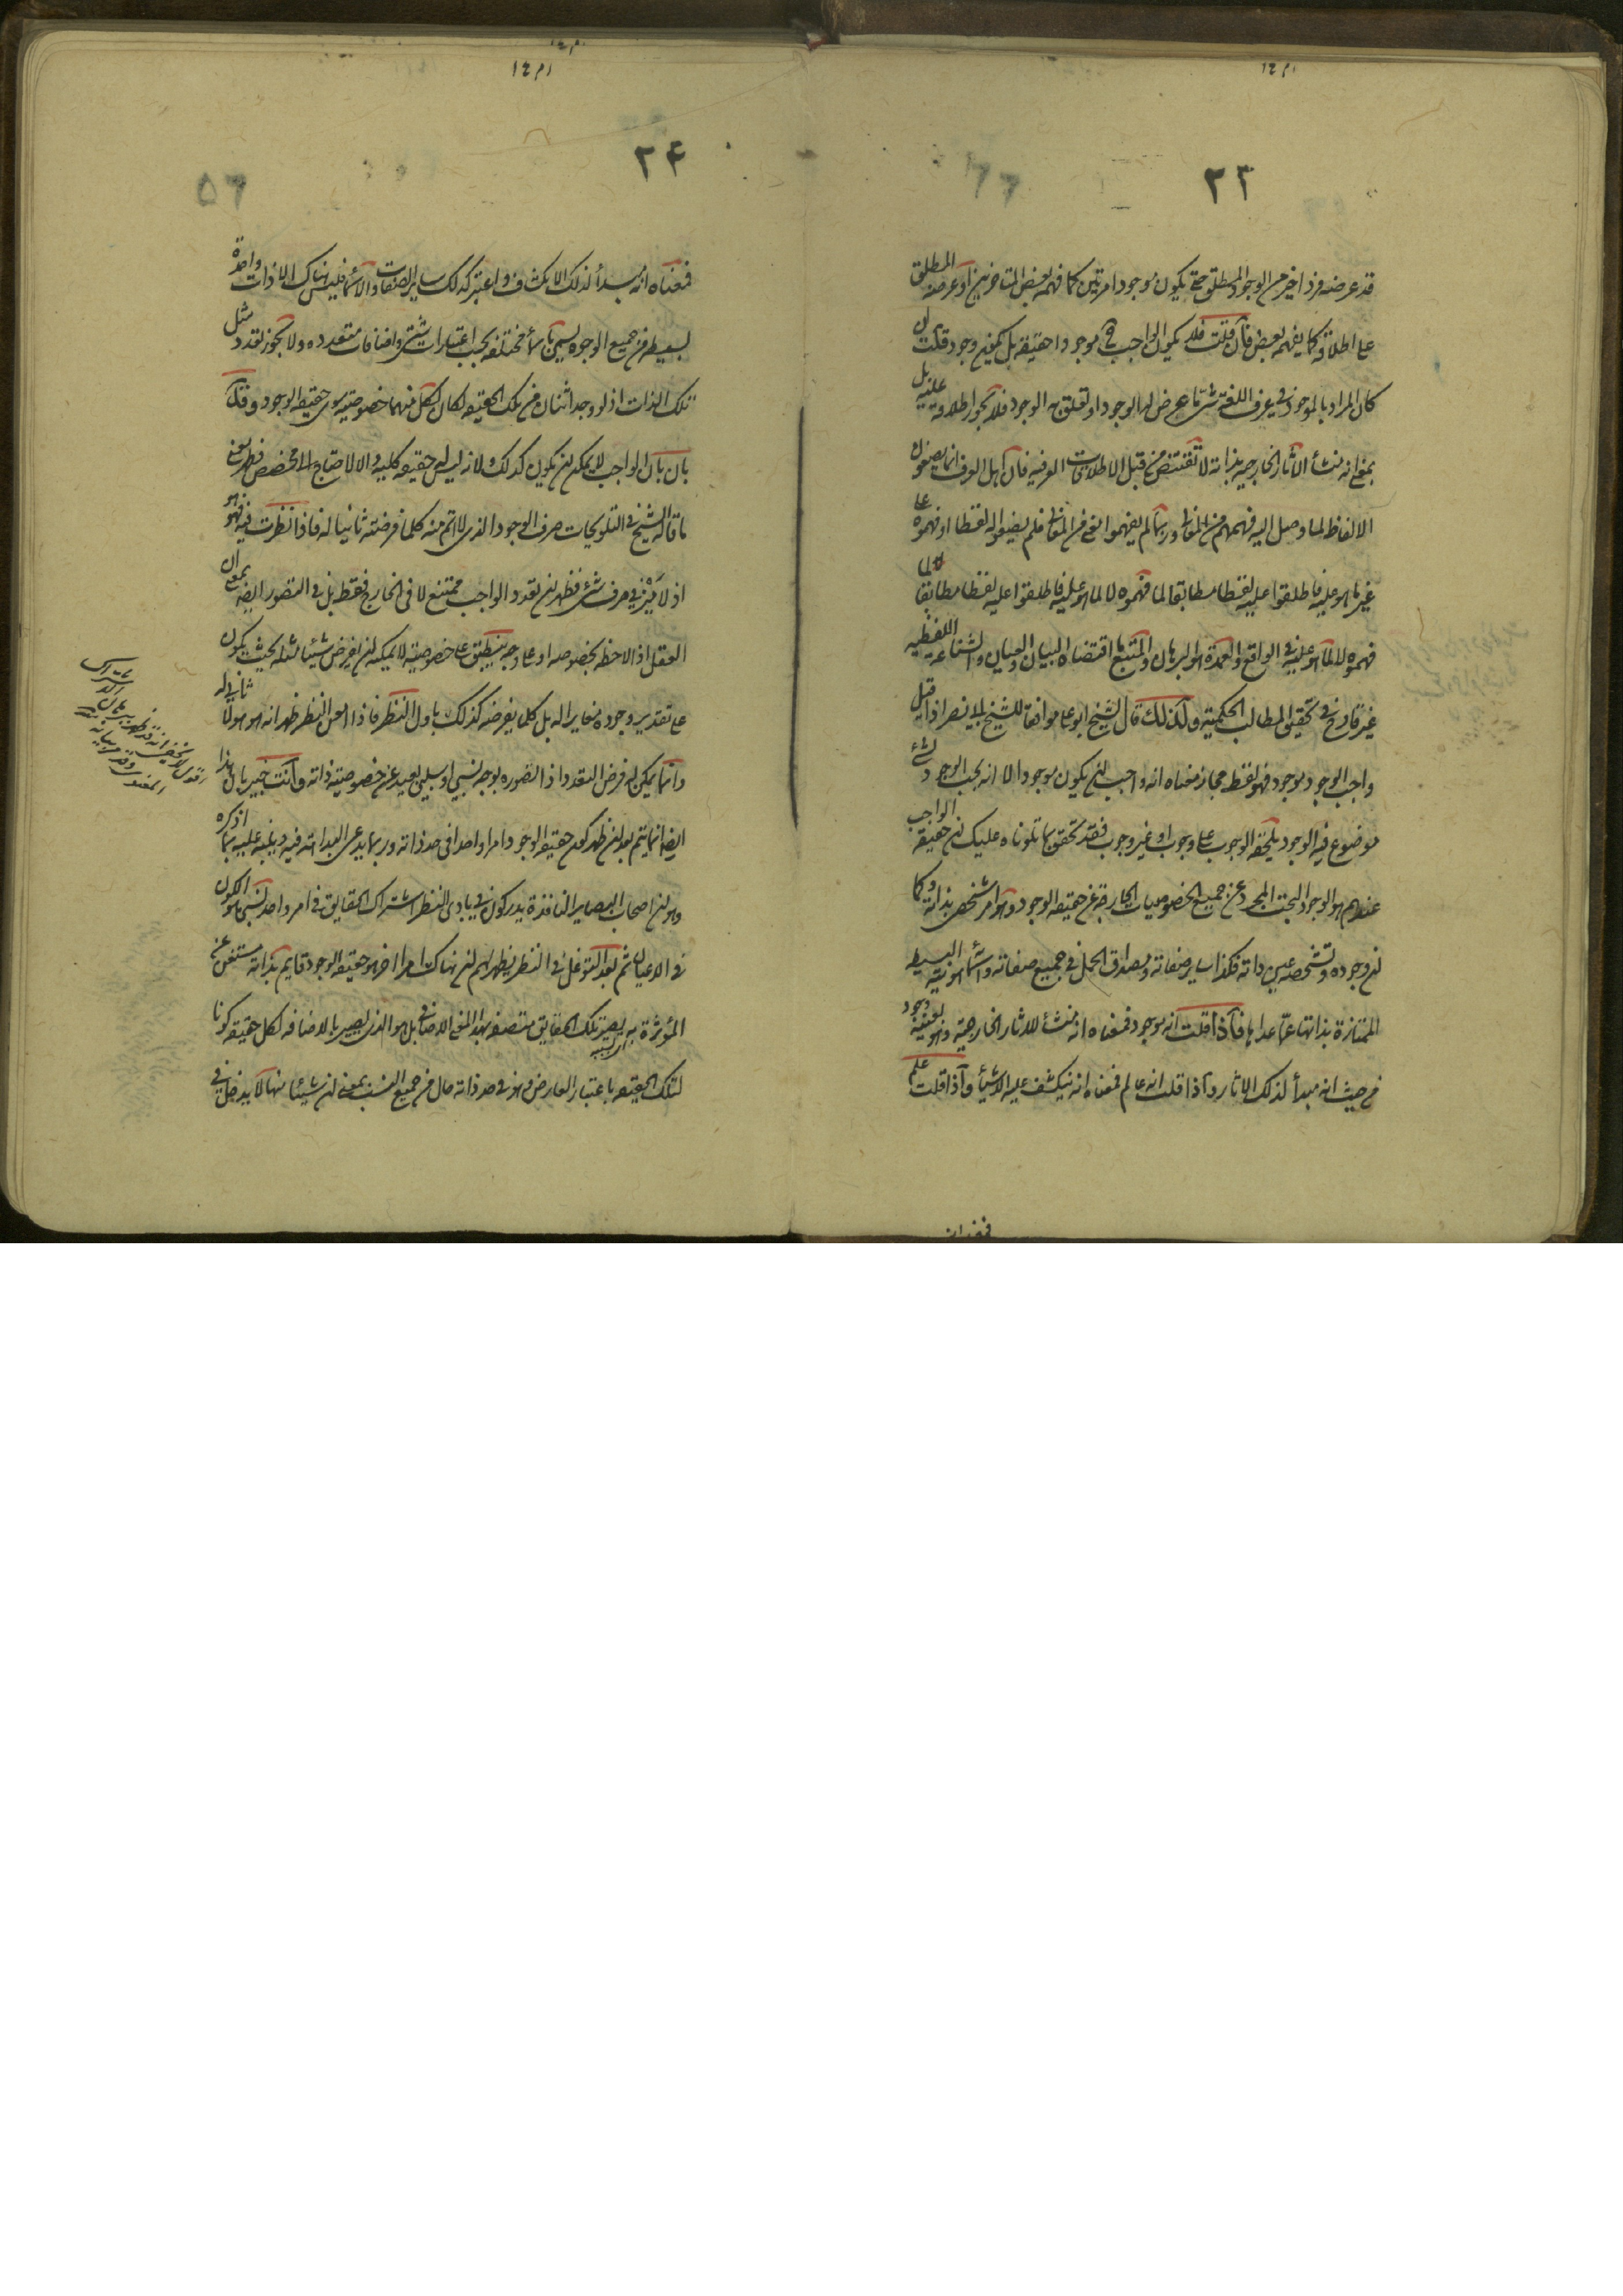 ٢٣
قد عرضه فرد اخر من الوجود المطلق حتى يكون موجودا مرتين كما فهمه بعض المتاخرين او عرضه المطلق
على اطلاقه كما يفهمه بعض فان قلت فلا يكون الواجب موجودا حقيقة بل بمعنى وجود قلت ان
كان المراد بالموجود في عرف اللغة شئ عرض له الوجود او تعلق به الوجود فلا يجوز اطلاقه عليه بل
بمعنى انه منشأ الاثار الخارجية بذاته لا تقتنص من قبل الاطلاقات العرفية فان اهل العرف انما يضعون
الالفاظ لما وصل اليه فهمهم من المعانى وربما لم يفهموا معنى من المعانى فلم يضعوا له لفظا او فهموه على
غير ما هو عليه فاطلقوا عليه لفظا مطابقا لما فهموه لا لما هو عليه فاطلقوا عليه لفظا مطابقا لما
فهموه لا لما هو عليه في الواقع والعمدة هو البرهان والمتبع ما اقتضاه البيان والعيان والشناعة اللفظية
غير قادح في تحقيق المطالب الحكمية ولذلك قال الشيخ ابو على موافقا للشيخ ابى نصر اذا قيل
واجب الوجود موجود فهو لفظ مجاز معناه انه واجب ان يكون موجودا لا انه يجب الوجود لشئ
موضوع فيه الوجود يلحقه الوجوب على وجوب او غير وجوب فقد تحقق بما تلوناه عليك ان حقيقة الواجب
عندهم هو الوجود البحت المجرد عن جميع الخصوصيات الخارجة عن حقيقة الوجود وهو امر شخصى بذاته وكما
ان وجوده وتشخصه عين ذاته فكذا ساير صفاته ومصداق الحمل في جميع صفاته واسمائه هويته البسيطه
الممتازة بذاتها عما عداها فاذا قلت انه موجود فمعناه انه منشأ للاثار الخارجية وهو بعينه وجود
من حيث انه مبدأ لذلك الاثار واذا قلت انه عالم فمعناه انه ينكشف عليه الاشياء واذا قلت علم
٢٤
فمعناه انه مبدأ لذلك الانكشاف واعتبر كذلك ساير الصفات والاسماء فليس هناك الا ذات واحدة
بسيطه من جميع الوجوه يسمى باسماء مختلفه بحسب اعتبارات شتى واضافات متعدده ولا يجوز تعدد مثل
تلك الذات اذ لو وجد اثنان من تلك الحقيقه لكان لكل منهما خصوصيه سوى حقيقة الوجود وقد
بان بان الواجب لا يمكن ان يكون كذلك ولانه ليس حقيقه كلية والا لاحتاج الى مخصص فظهر معنى
ما قاله الشيخ في التلويحات صرف الوجود الذى لا اتم منه كلما فرضته ثانيا له فاذا نظرت فيه فهو هو
اذ لا ميز في صرف شئ فظهر ان تعدد الواجب ممتنع لا في الخارج فقط بل في التصور ايضا بمعنى ان
العقل اذا لاحظه بخصوصه او على وجه ينطبق على خصوصيته لا يمكنه ان يفرض شيئا مثله بحيث يكون
على تقدير وجوده مغايرا له بل كلما يفرضه كذلك باول النظر فاذا امعن النظر ظهر انه هو هو لا ثانى له
وانما يمكن له فرض التعدد اذا تصوره بوجه نسبى او سلبى بعيد عن خصوصية ذاته وانت خبير بان هذا
ايضا انما يتم بعد ان ظهر كون حقيقة الوجود امرا واحدا في حد ذاته وربما يدعى البداهة فيه وينبه عليه بما اذكره
وهو ان اصحاب البصاير النافذة يدركون في بادى النظر اشتراك الحقايق في امر واحد نسبى هو الكون
في الاعيان ثم بعد التوغل في النظر يظهر لهم ان هناك امرا اخر هو حقيقة الوجود قايم بذاته مستغن عن
المؤثر به يصير تلك الحقايق متصفه بهذا المعنى الاضافى بل هو الذى يصير بالاضافه لكل حقيقه كونا
لتلك الحقيقه باعتبار العارض وهو في حد ذاته خال من جميع النسب بمعنى ان شيئا منها لا يدخل في